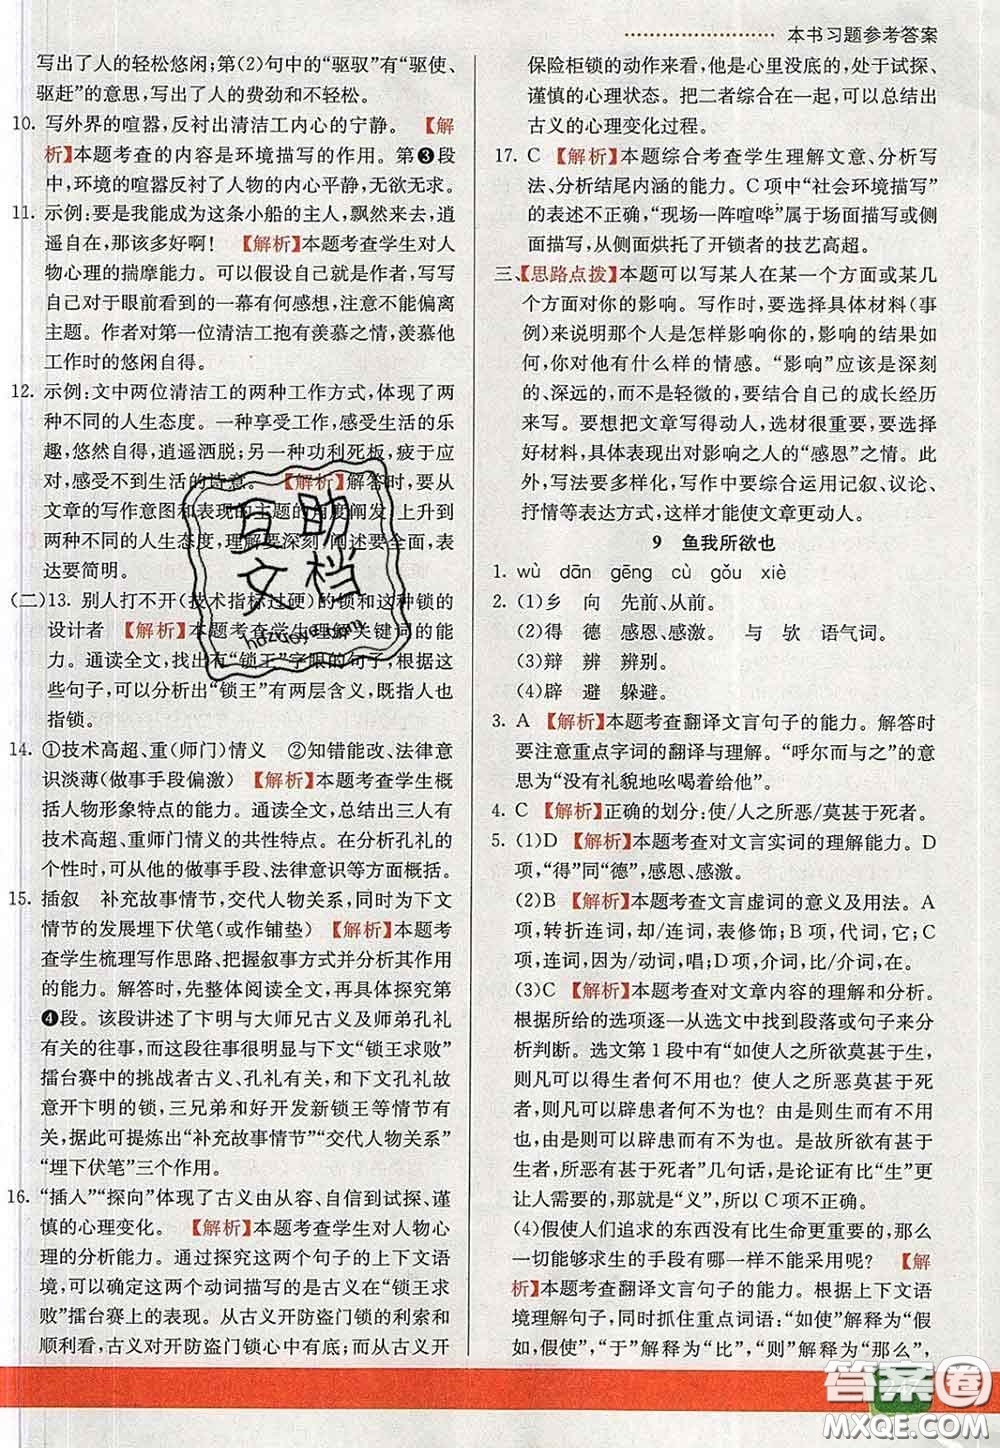 本书习题参考答案
写出了人的轻松悠闲;第(2)句中的“驱驭”有“驱使、
驱赶”的意思,写出了人的费劲和不轻松。
10. 写外界的喧嚣,反衬出清洁工内心的宁静。 【解
析】本题考查的内容是环境描写的作用。第❸段
中,环境的喧嚣反衬了人物的内心平静,无欲无求。
11. 示例:要是我能成为这条小船的主人,飘然来去,逍
遥自在,那该多好啊! 【解析】本题考查学生对人
物心理的揣摩能力。可以假设自己是作者,写写
自己对于眼前看到的一幕有何感想,注意不能偏离
主题。作者对第一位清洁工抱有羡慕之情,羡慕他
工作时的悠闲自得。
12. 示例:文中两位清洁工的两种工作方式,体现了两
种不同的人生态度。一种享受工作,感受生活的乐
趣,悠然自得,逍遥洒脱;另一种功利死板,疲于应
对,感受不到生活的诗意。 【解析】解答时,要从
文章的写作意图和表现的主题的角度阐发,上升到
两种不同的人生态度,理解要深刻,阐述要全面,表
达要简明。
(二)13. 别人打不开(技术指标过硬)的锁和这种锁的
设计者 【解析】本题考查学生理解关键词的能
力。通读全文,找出有“锁王”字眼的句子,根据这
些句子,可以分析出“锁王”有两层含义,既指人也
指锁。
14. ①技术高超、重(师门)情义 ②知错能改、法律意
识淡薄(做事手段偏激) 【解析】本题考查学生概
括人物形象特点的能力。通读全文,总结出三人有
技术高超、重师门情义的共性特点。在分析孔礼的
个性时,可从他的做事手段、法律意识等方面概括。
15. 插叙 补充故事情节,交代人物关系,同时为下文
情节的发展埋下伏笔(或作铺垫) 【解析】本题考
查学生梳理写作思路、把握叙事方式并分析其作用
的能力。解答时,先整体阅读全文,再具体探究第
❹段。该段讲述了卞明与大师兄古义及师弟孔礼
有关的往事,而这部分内容很明显与下文“锁王求败”
擂台赛中的挑战者古义、孔礼有关,和下文孔礼故
意开卞明的锁,三兄弟和好开发新锁王等情节有
关,据此可提炼出“补充故事情节”“交代人物关系”
“埋下伏笔”三个作用。
16. “插入”“探向”体现了古义由从容、自信到试探、谨
慎的心理变化。 【解析】本题考查学生对人物心
理的分析能力。通过探究这两个句子的上下文语
境,可以确定这两个动词描写的是古义在“锁王求
败”擂台赛上的表现。从古义开防盗门锁的利索和
顺利看,古义对开防盗门锁心中有底。从古义开
保险柜锁的动作来看,他是心里没底的,处于试探、
谨慎的心理状态。把二者综合在一起,可以总结出
古义的心理变化过程。
17. C 【解析】本题综合考查学生理解文意、分析写
法、分析结尾内涵的能力。C 项中“社会环境描写”
的表述不正确,“现场一阵喧哗”属于场面描写,应
为场面描写,从侧面烘托了开锁者的技艺高超。
三、【思路点拨】本题可以写某人在某一个方面或某几
个方面对你的影响。写作时,要选择具体材料(事
例)来说明那个人是怎样影响你的,影响的结果如
何,你对他有什么样的情感。“影响”应该是深刻
的、深远的,而不是轻微的,要结合自己的成长经历
来写。要想把文章写得动人,选材很重要,多选细
节,具体表现出对影响之人的“感恩”之情。此
外,写法要多样化,写作中要综合运用记叙、议论、
抒情等表达方式,这样才能使文章更动人。
9 鱼我所欲也
1. wù dān gēng cù gǒu xiè
2. (1)乡 向 先前、从前。
(2)得 德 感恩、感激。 与 欤 语气词。
(3)辩 辨 辨别。
(4)辟 避 躲避。
3. A 【解析】本题考查翻译文言句子的能力。解答时
要注意重点字词的翻译与理解。“呼尔而与之”的意
思为“没有礼貌地吆喝着给他”。
4. C 【解析】正确的划分:使/人之所恶/莫甚于死者。
5. (1)D 【解析】本题考查对文言实词的理解能力。D
项,“得”同“德”,感恩、感激。
(2)B 【解析】本题考查文言虚词的意义及用法。A
项,转折连词,却/连词,表承接;B 项,代词,它;C
项,连词,因为/动词,唱;D 项,介词,比/介词,在。
(3)C 【解析】本题考查对文章内容的理解和分析。
根据所给的选项逐一从文中找到段落或句子来进行
分析判断。选文第 1 段中有“如使人之所欲莫甚于生,
则凡可以得生者何不用也? 使人之所恶莫甚于死者,
则凡可以辟患者何不为也? 由是则生而有不用
也,由是则可以辟患而有不为也。是故所欲有甚于
生者,所恶有甚于死者”几句话,是论证有比“生”更
让人值得珍惜的东西,那就是“义”,所以 C 项不正确。
(4)假使人们追求的东西没有比生命更重要的,那么
一切能够求生的手段有哪一样不能采用呢? 【解
析】本题考查翻译文言句子的能力。根据上下文语
境理解句子,同时抓住重点词语:“如使”解释为“假
如,假使”,“于”解释为“比”,“则”解释为“那么”,
互助
文档
hdzuoye.com
答案圈
MXQE.COM